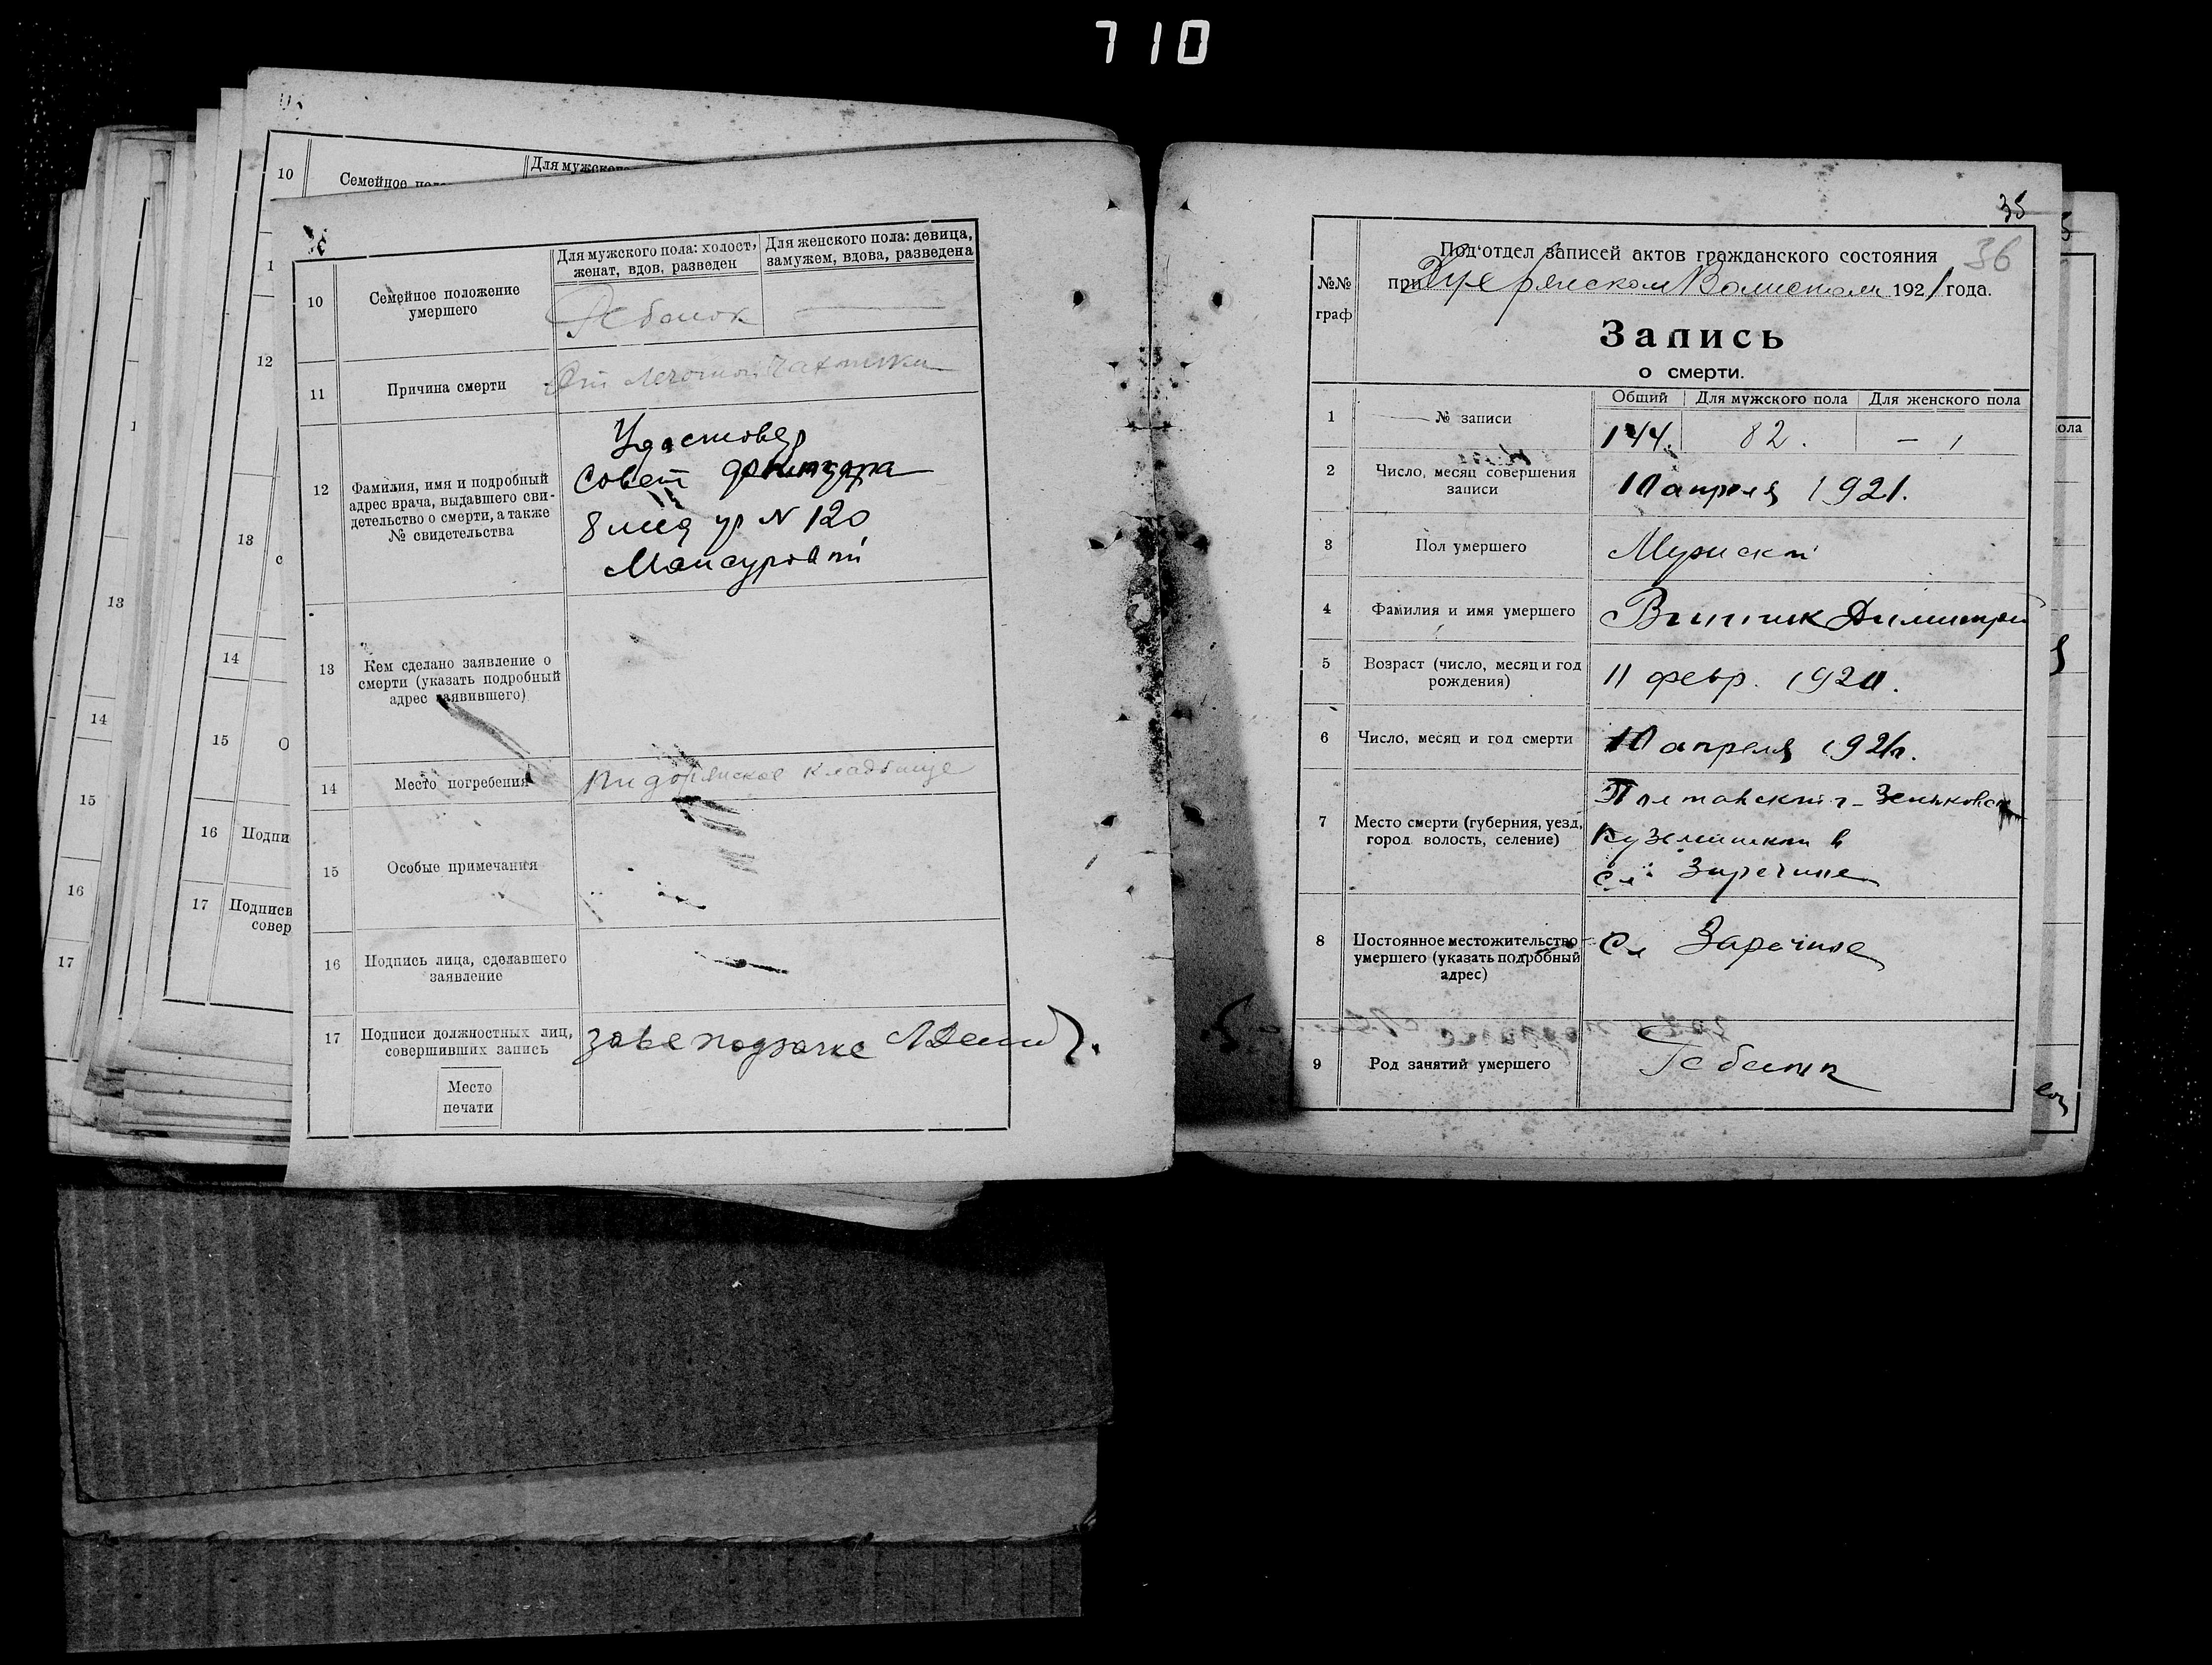 710
10
Семейное
Для мужского
1
12
13
с
14
15
О
16 Подпи
17 Подписи
совер
13
14
15
16
17
10
Семейное положение
умершего
Для мужского пола: холост,
женат, вдов, разведен
Для женского пола: девица,
замужем, вдова, разведена
Ребенок
—
11
Причина смерти
От легочной чахотки
12
Фамилия, имя и подробный
адрес врача, выдавшего сви-
детельство о смерти, а также
№ свидетельства
Удостовер
Совет
N 120
13
Кем сделано заявление о
смерти (указать подробный
адрес заявившего)
14
Место погребения
кладбище
15
Особые примечания
16
Подпись лица, сделавшего
заявление
17
Подписи должностных лиц,
совершивших запись
Место
печати
35
36
№№
граф
Под'отдел записей актов гражданского состояния
при 1921 года.
Запись
о смерти.
1
№ записи
Общий
Для мужского пола
Для женского пола
144.
82.
—
2
Число, месяц совершения
записи
10 апреля 1921.
3
Пол умершего
Мужской
4
Фамилия и имя умершего
Винник Димитрий
5
Возраст (число, месяц и год
рождения)
11 февр.
6
Число, месяц и год смерти
10 апреля 1921г.
7
Место смерти (губерния, уезд,
город волость, селение)
Полтавской г. Зеньковск
в
Сл Заречное
8
Постоянное местожительство
умершего (указать подробный
адрес)
Сл Заречное
9
Род занятий умершего
Ребенок
ола